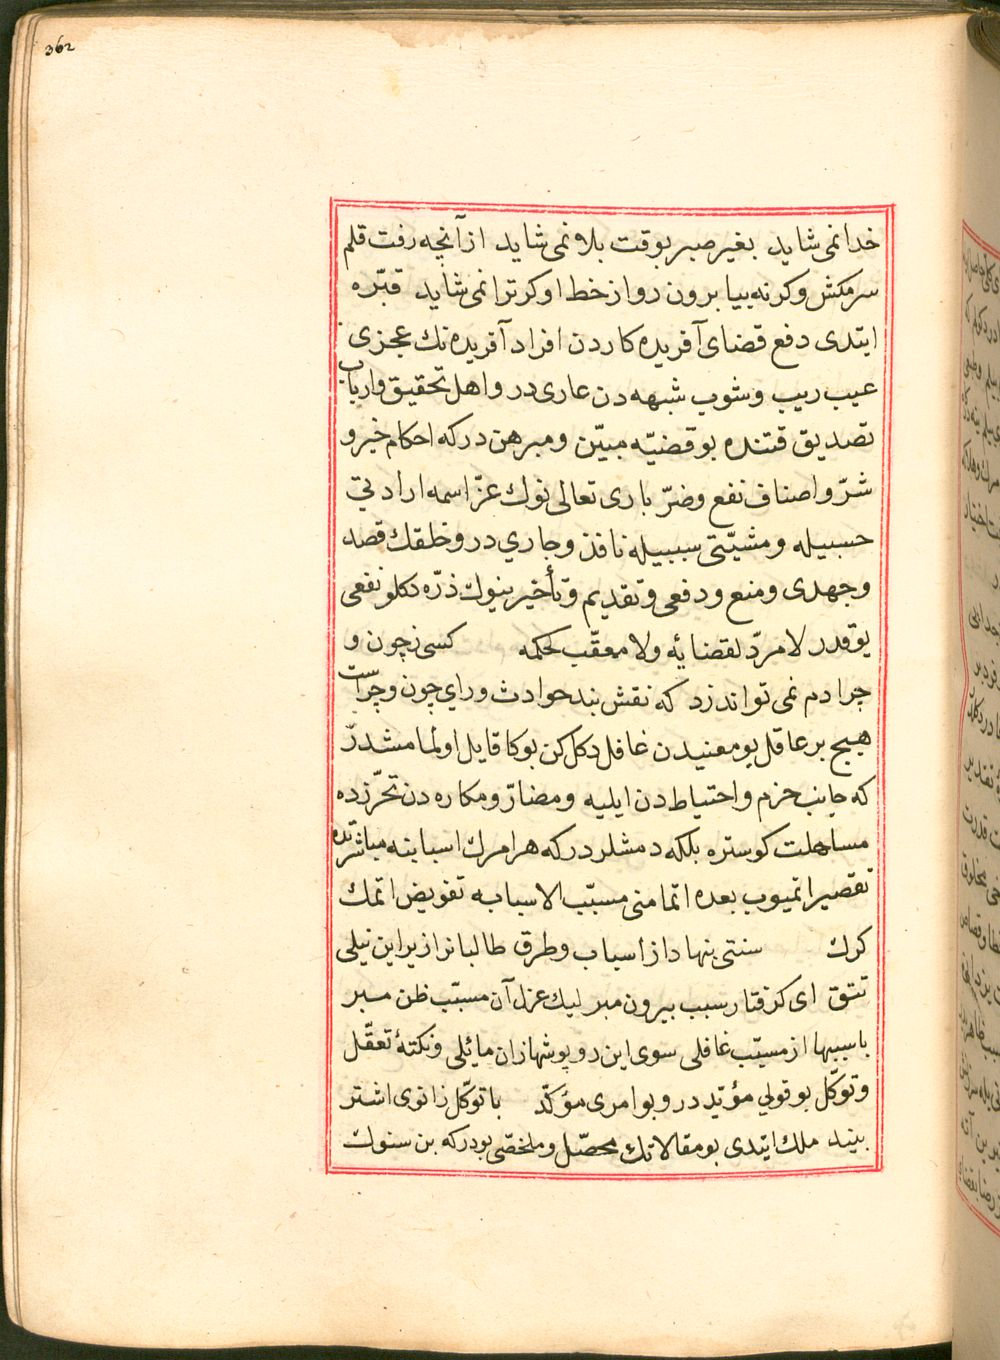 362
خدا نمی شاید بغیر صبر بوقت بلا نمی شاید از آنچه رفت قلم
سر مکش وکر نه بیا برون رو از خط او کر ترا نمی شاید قبّره
ایتدی دفع قضای آفریده کاردن افراد آفریده نك عجزی
عیب ریب وشوب شبهه دن عاری در واهل تحقیق وارباب
تصدیق قتنده بو قضیّه مبیّن ومبرهن در که احکام خیر و
شرّ واصناف نفع وضرّ باری تعالی نوك عزّ اسمه ارادتی
حسبیله ومشیّتی سببیله نافذ وجاري در وخلقك قصد
وجهدی ومنع ودفعی وتقدیم وتأخیرینوك ذرّه دکلو نفعی
یوقدر لا مردّ لقضائه ولا معقّب لحکمه کسی زچون و
چرا دم نمی تواند زد که نقش بند حوادث ورای چون وچراست
هیچ بر عاقل بو معنیدن غافل دکل کن بوکا قایل اولمامشدر
که جانب حزم واحتیاط دن ایلیه ومضارّ ومکاره دن تحرّزده
مساهلت کوستره بلکه دمشلردر که هر امرك اسبابنه مباشرتده
تقصیر اتمیوب بعده اتمامنی مسبّب الاسبابه تفویض اتمك
کرك سنتی بنهاد از اسباب وطرق طالبانرا زیر این نیلی
تتق ای کرفتار سبب بیرون مبر لیك عزل آن مسبّب ظن مبر
با سببها از مسبّب غافلی سوی این روپوشها زان مائلی ونکتهٔ تعقّل
وتوکّل بو قولي مؤیّد در وبو امری مؤکّد با توکّل زانوی اشتر
ببند ملك ایتدی بو مقالاتك محصّل وملخصّی بودر که بن سنوك